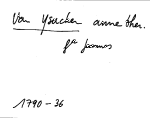 Van Ysacker anne ther.
fa joannes
1790-36